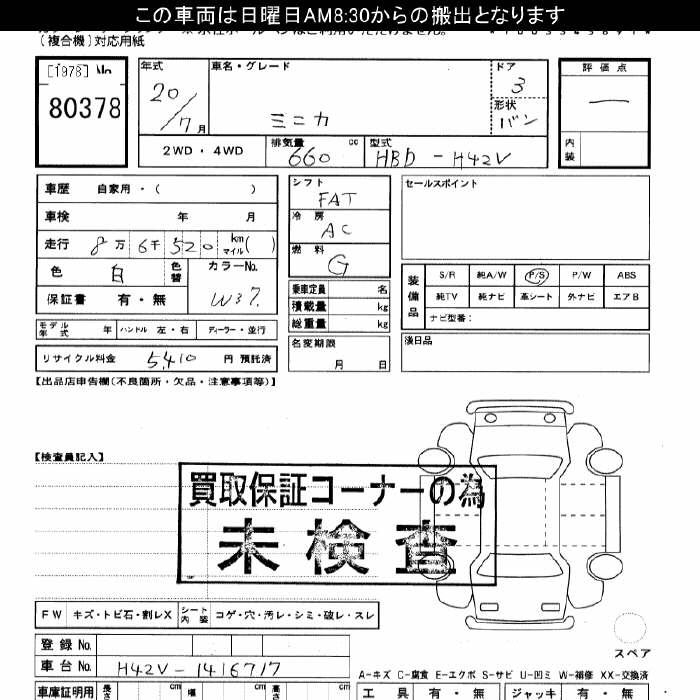 この車両は日曜日AM8:30からの搬出となります
(複合機)対応用紙
[1978] No
80378
年式
20/7月
車名・グレード
ミニカ
ドア
3
形状
バン
評価点
―
内装
2WD・4WD
排気量
660 cc
型式
HBD-H42V
車歴 自家用・( )
車検 年 月
走行 8万 6千 520 km マイル( )
色 白 色替 カラーNo. W37.
保証書 有・無
シフト
FAT
冷房
AC
燃料
G
乗車定員 名
積載量 kg
総重量 kg
セールスポイント
装備品
S/R 純A/W P/S P/W ABS
純TV 純ナビ 革シート 外ナビ エアB
ナビ型番:
モデル年式 年 ハンドル 左・右 ディーラー・並行
リサイクル料金 5,410 円 預託済
名変期限
月 日
欠日品
【出品店申告欄(不良箇所・欠品・注意事項等)】
【検査員記入】
買取保証コーナーの為
未検査
FW キズ・トビ石・割レX シート内装 コゲ・穴・汚レ・シミ・破レ・スレ
スペア
登録No.
車台No. H42V-1416717
A-キズ C-腐食 E-エクボ S-サビ U-凹ミ W-補修 XX-交換済
車庫証明用 長さ cm 幅 cm 高さ cm
工具 有・無 ジャッキ 有・無